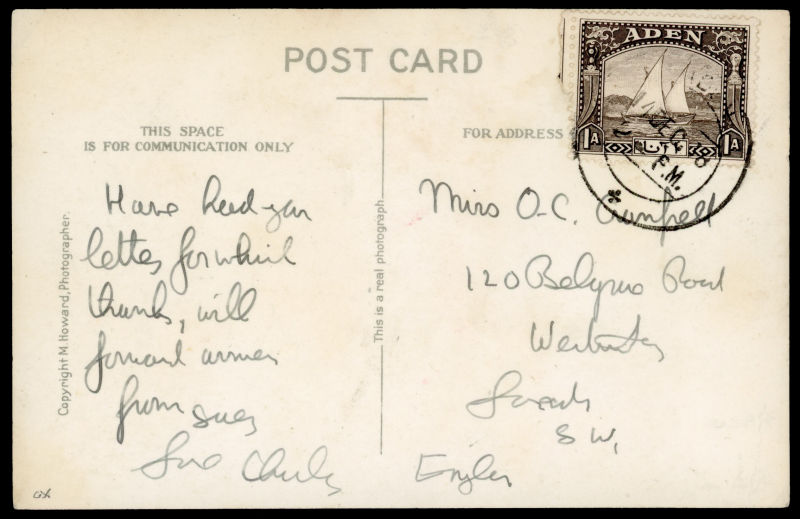 POST CARD
THIS SPACE
IS FOR COMMUNICATION ONLY
FOR ADDRESS
ADEN
1A
1A
DEC
P.M.
Have had your
letter for which
thanks, will
forward
from Suez
Love Charles
Miss O.C. Campbell
120 Belgrave Road
Westminster
London
S.W.
England
Copyright M. Howard, Photographer.
This is a real photograph